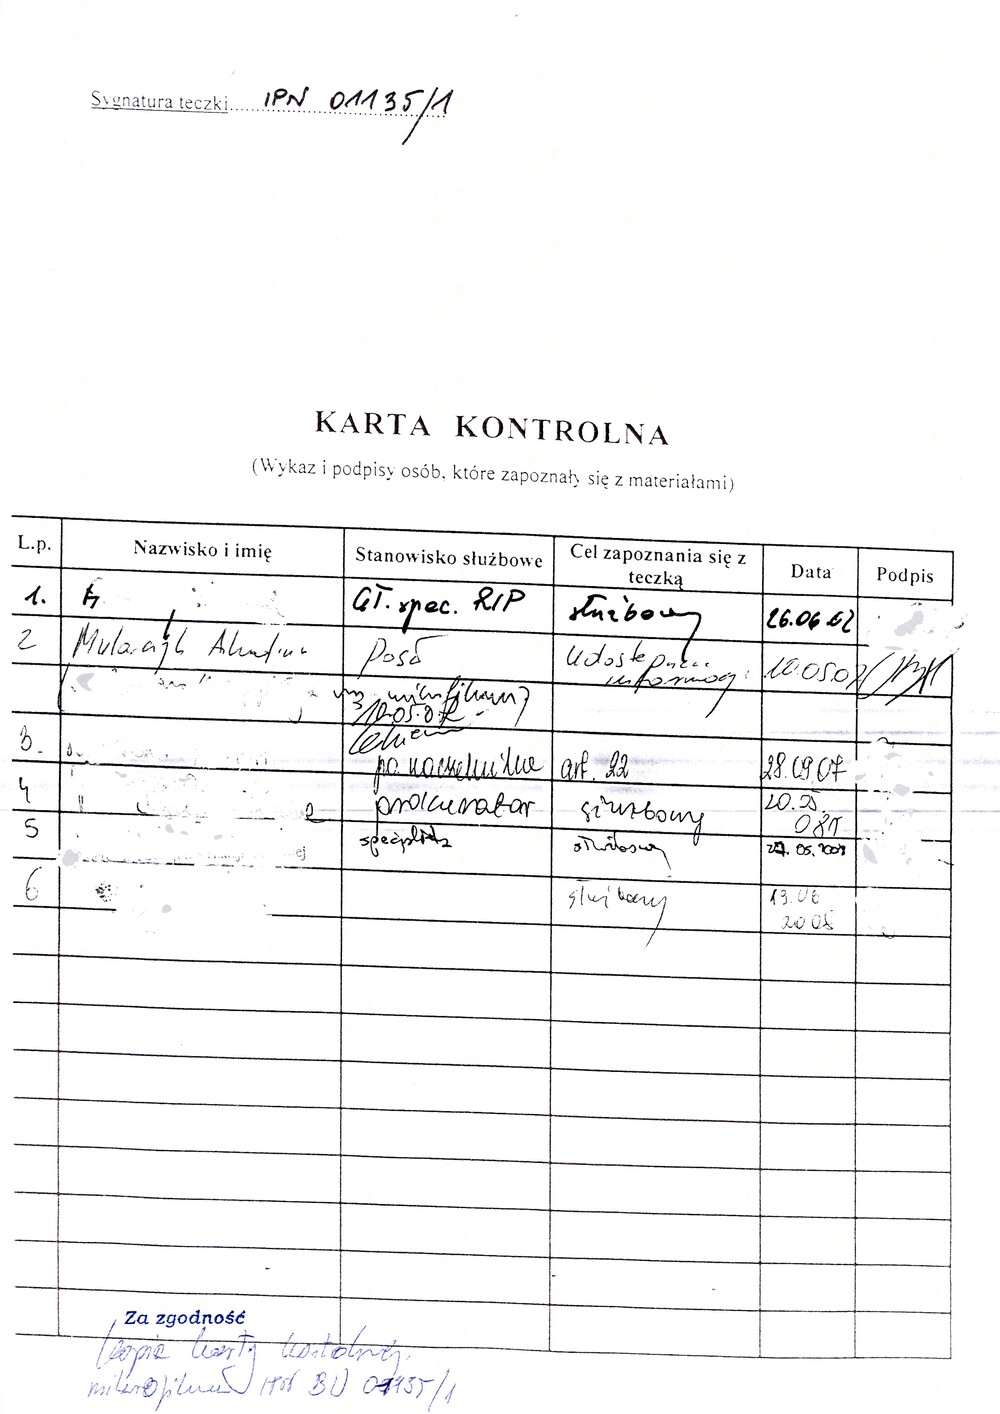 Sygnatura teczki.... IPN 01135/1
KARTA KONTROLNA
(Wykaz i podpisy osób, które zapoznały się z materiałami)
L.p. Nazwisko i imię Stanowisko służbowe Cel zapoznania się z teczką Data Podpis
1. Gł. spec. RIP służbowy 26.06.02
2 Mularczyk Poseł 10.05.07
mikrofilmy
10.05.07
3. art. 22 28.09.07
4 prokurator służbowy 20.
5 specjalista służbowy 27.05.2008
6 służbowy 13.06
2008
Za zgodność
kopia karty kontrolnej
mikrofilmu IPN BU 01135/1